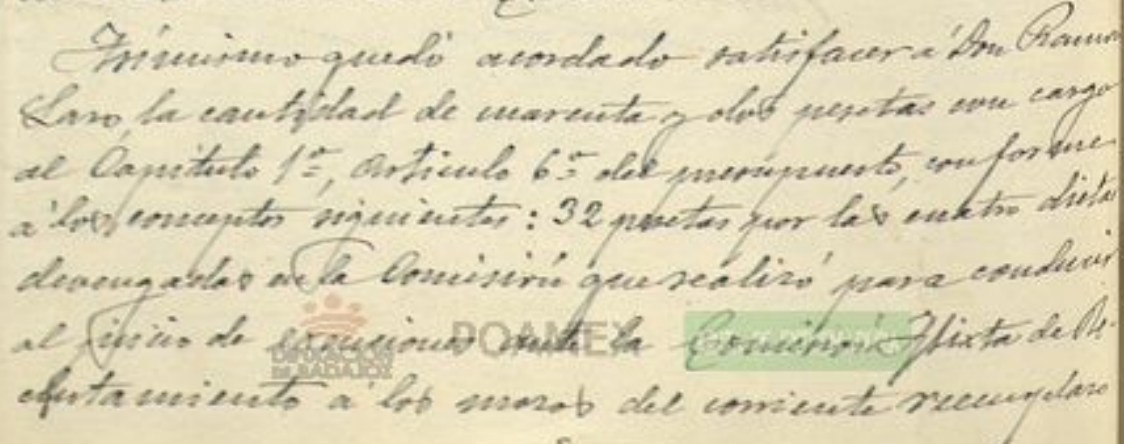 Asimismo quedó acordado satisfacer a Don Ramon
Laso, la cantidad de cuarenta y dos pesetas con cargo
al Capítulo 1º, Artículo 6º del presupuesto, conforme
a los conceptos siguientes: 32 pesetas por las cuatro dietas
devengadas en la Comisión que realizó para conducir
al juicio de exenciones ante la Comisión Mixta de Re-
clutamiento a los mozos del corriente reemplazo
DIPUTACIÓN
DE BADAJOZ